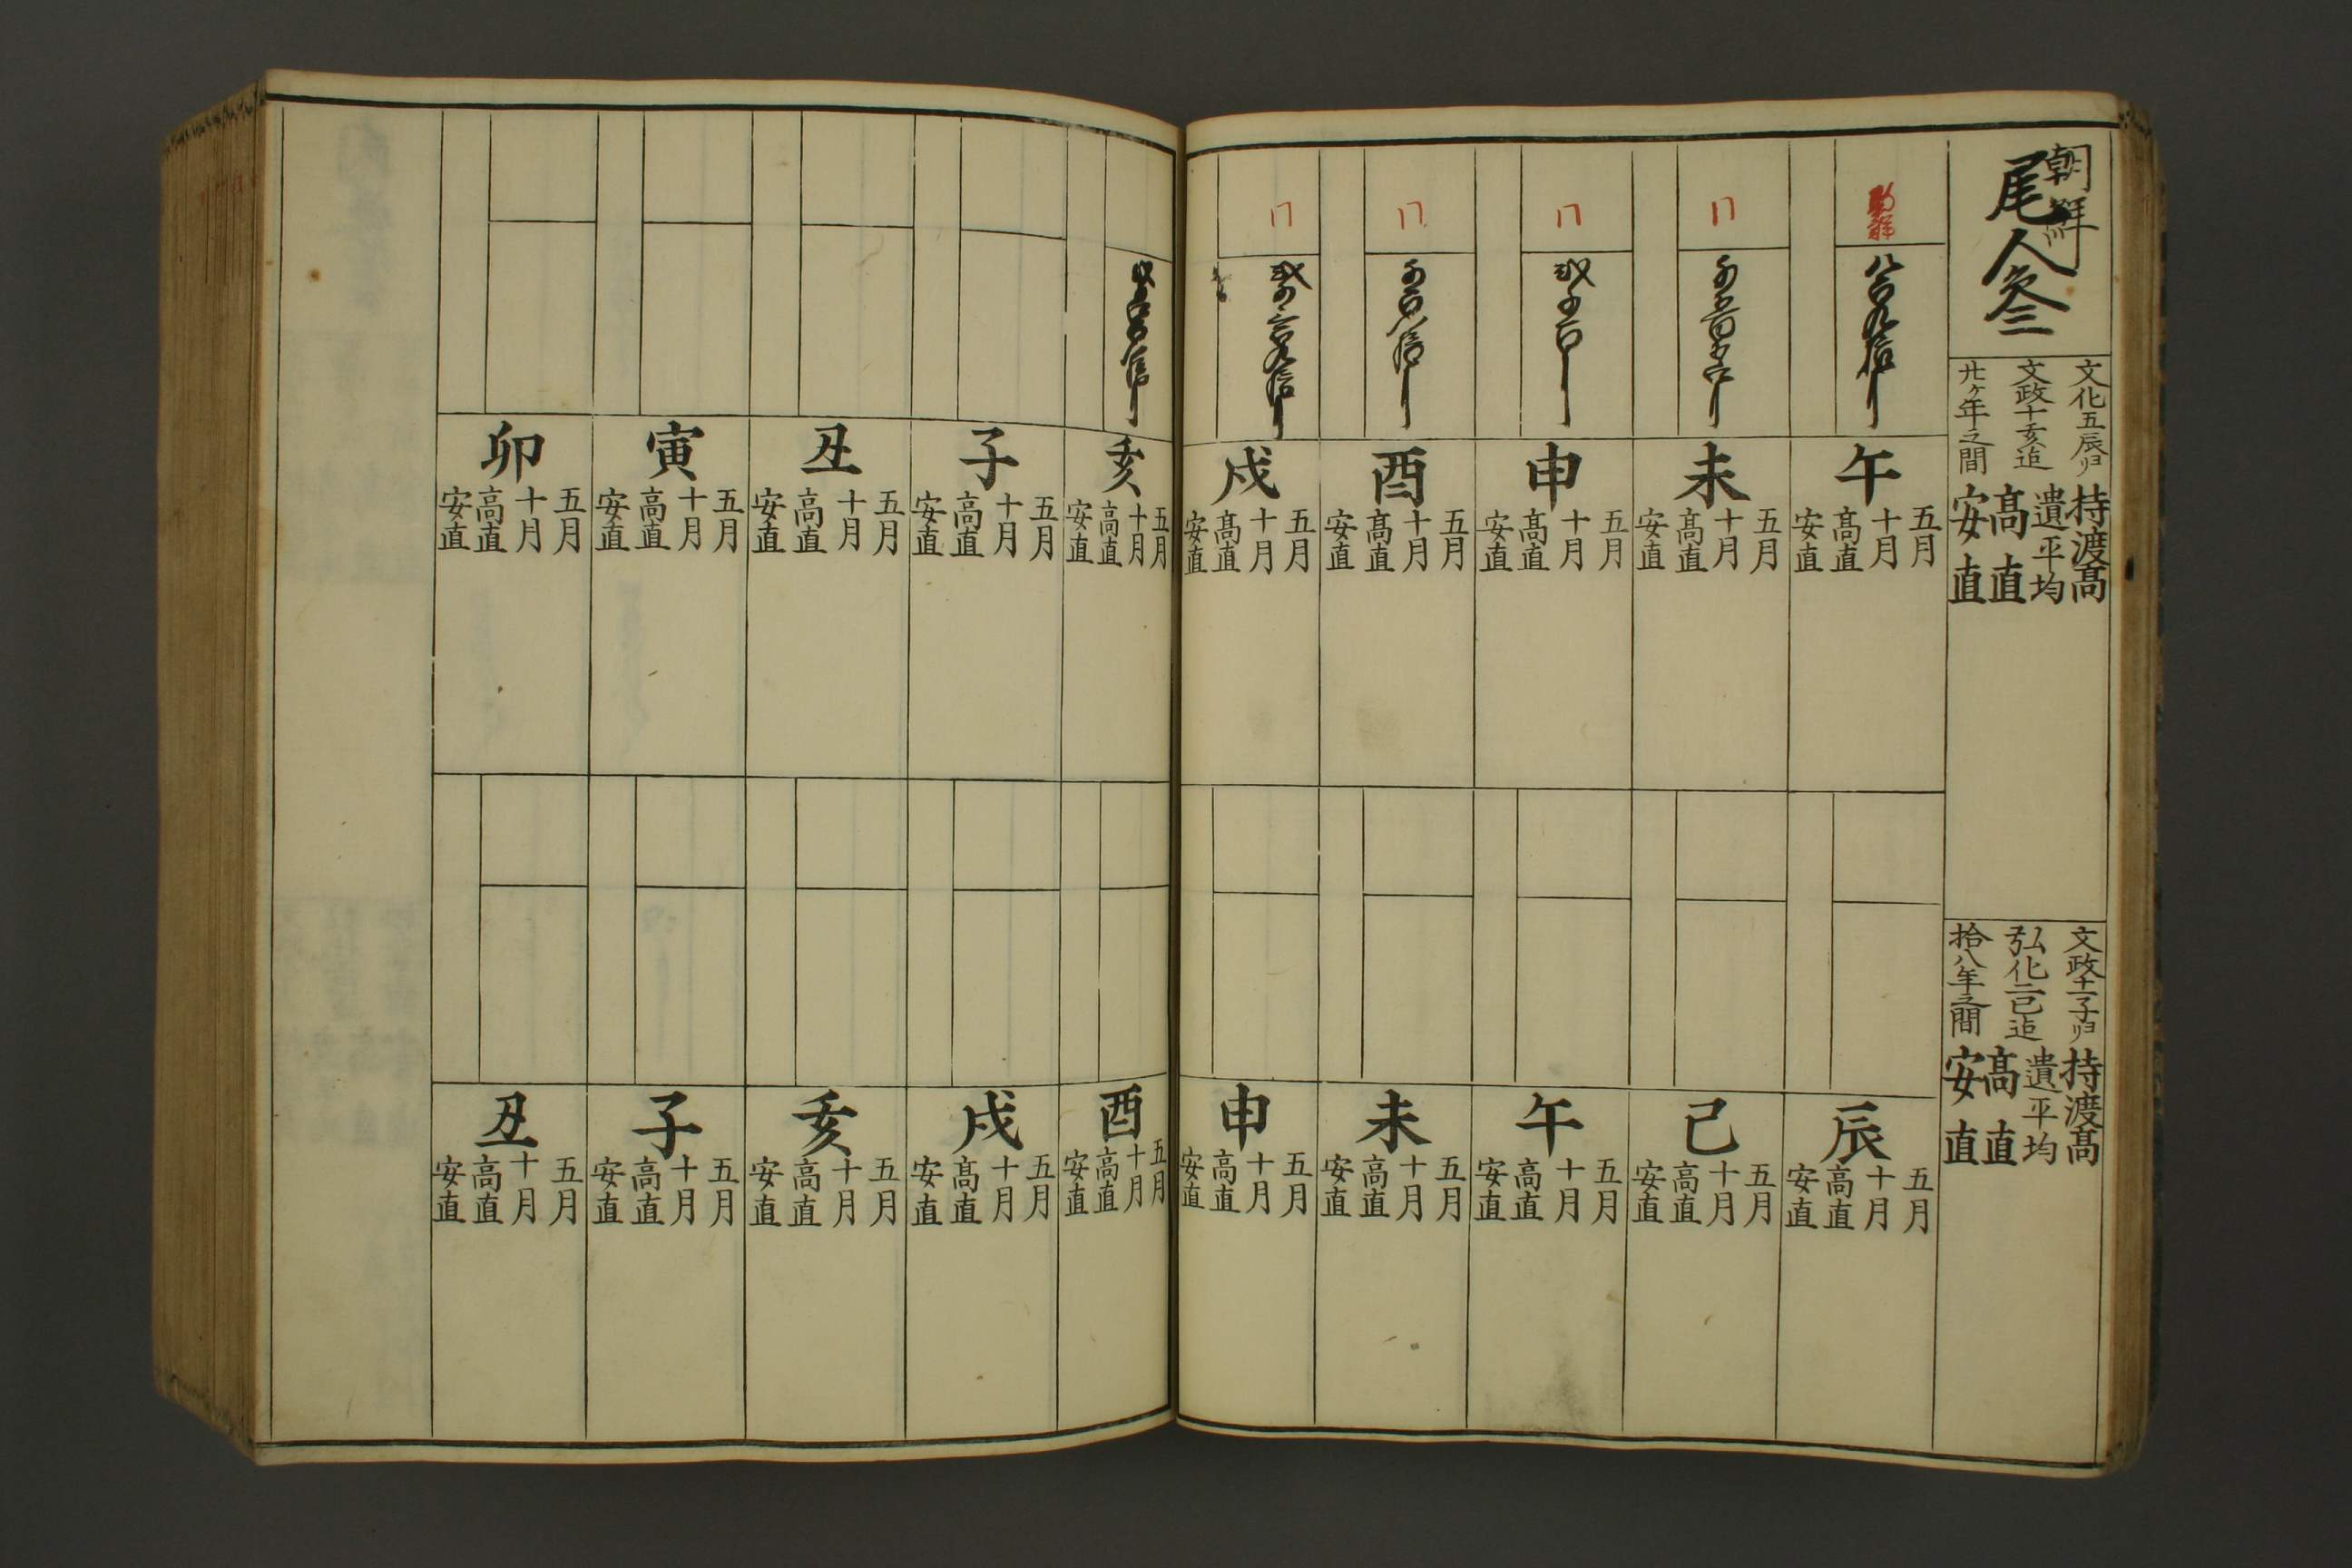 朝鮮
尾人参
文化五辰ゟ
文政十亥迠
廿ヶ年之間
持渡髙
遣平均
髙直
安直
文政十一子ゟ
弘化二巳迠
拾八年之間
持渡髙
遣平均
髙直
安直
朝鮮
午
五月
十月
髙直
安直
〃
未
五月
十月
髙直
安直
〃
申
五月
十月
髙直
安直
〃
酉
五月
十月
髙直
安直
〃
戌
五月
十月
髙直
安直
亥
五月
十月
髙直
安直
子
五月
十月
髙直
安直
丑
五月
十月
髙直
安直
寅
五月
十月
髙直
安直
卯
五月
十月
髙直
安直
辰
五月
十月
髙直
安直
巳
五月
十月
髙直
安直
午
五月
十月
髙直
安直
未
五月
十月
髙直
安直
申
五月
十月
髙直
安直
酉
五月
十月
髙直
安直
戌
五月
十月
髙直
安直
亥
五月
十月
髙直
安直
子
五月
十月
髙直
安直
丑
五月
十月
髙直
安直